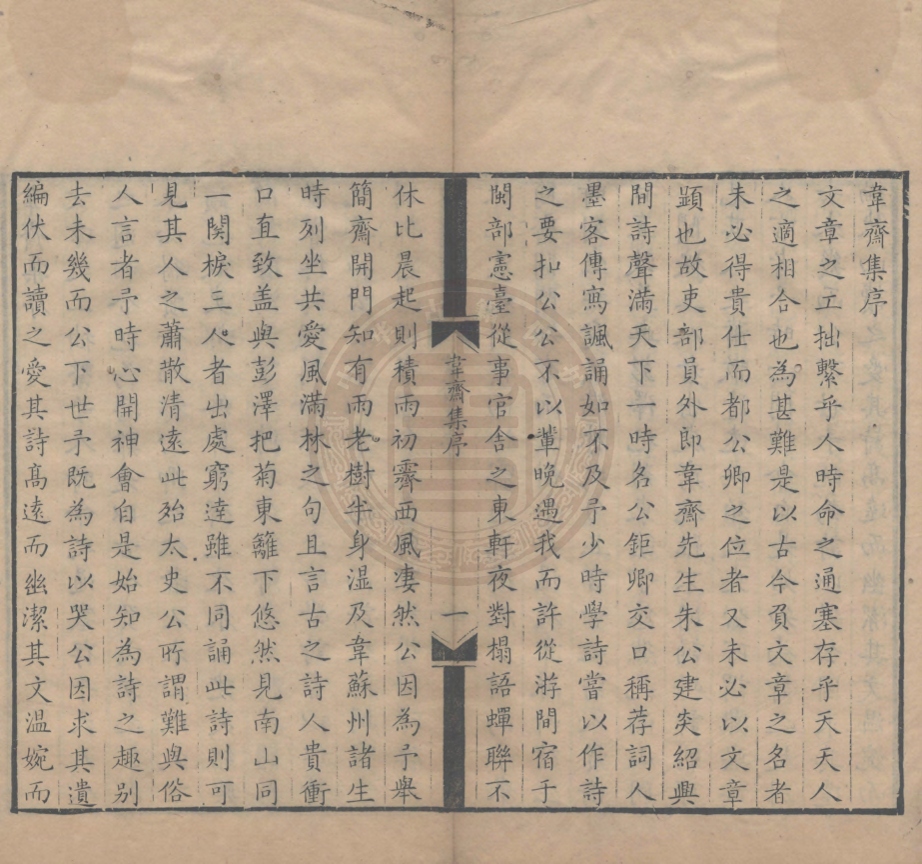 韋齋集序
文章之工拙繫乎人時命之通塞存乎天天人
之適相合也為甚難是以古今負文章之名者
未必得貴仕而都公卿之位者又未必以文章
顕也故吏部員外郎韋齋先生朱公建炎紹興
間詩聲滿天下一時名公鉅卿交口稱荐詞人
墨客傳寫諷誦如不及予少時學詩嘗以作詩
之要扣公公不以輩晚遇我而許從游間宿于
閩部憲臺從事官舍之東軒夜對榻語蟬聯不
韋齋集序
一
休比晨起則積雨初霽西風凄然公因為予舉
簡齋開門知有雨老樹半身湿及韋蘇州諸生
時列坐共愛風滿林之句且言古之詩人貴衝
口直致盖與彭澤把菊東籬下悠然見南山同
一関棙三人者出處窮達雖不同誦此詩則可
見其人之蕭散清遠此殆太史公所謂難與俗
人言者予時心開神會自是始知為詩之趣别
去未幾而公下世予既為詩以哭公因求其遺
編伏而讀之愛其詩髙遠而幽潔其文温婉而